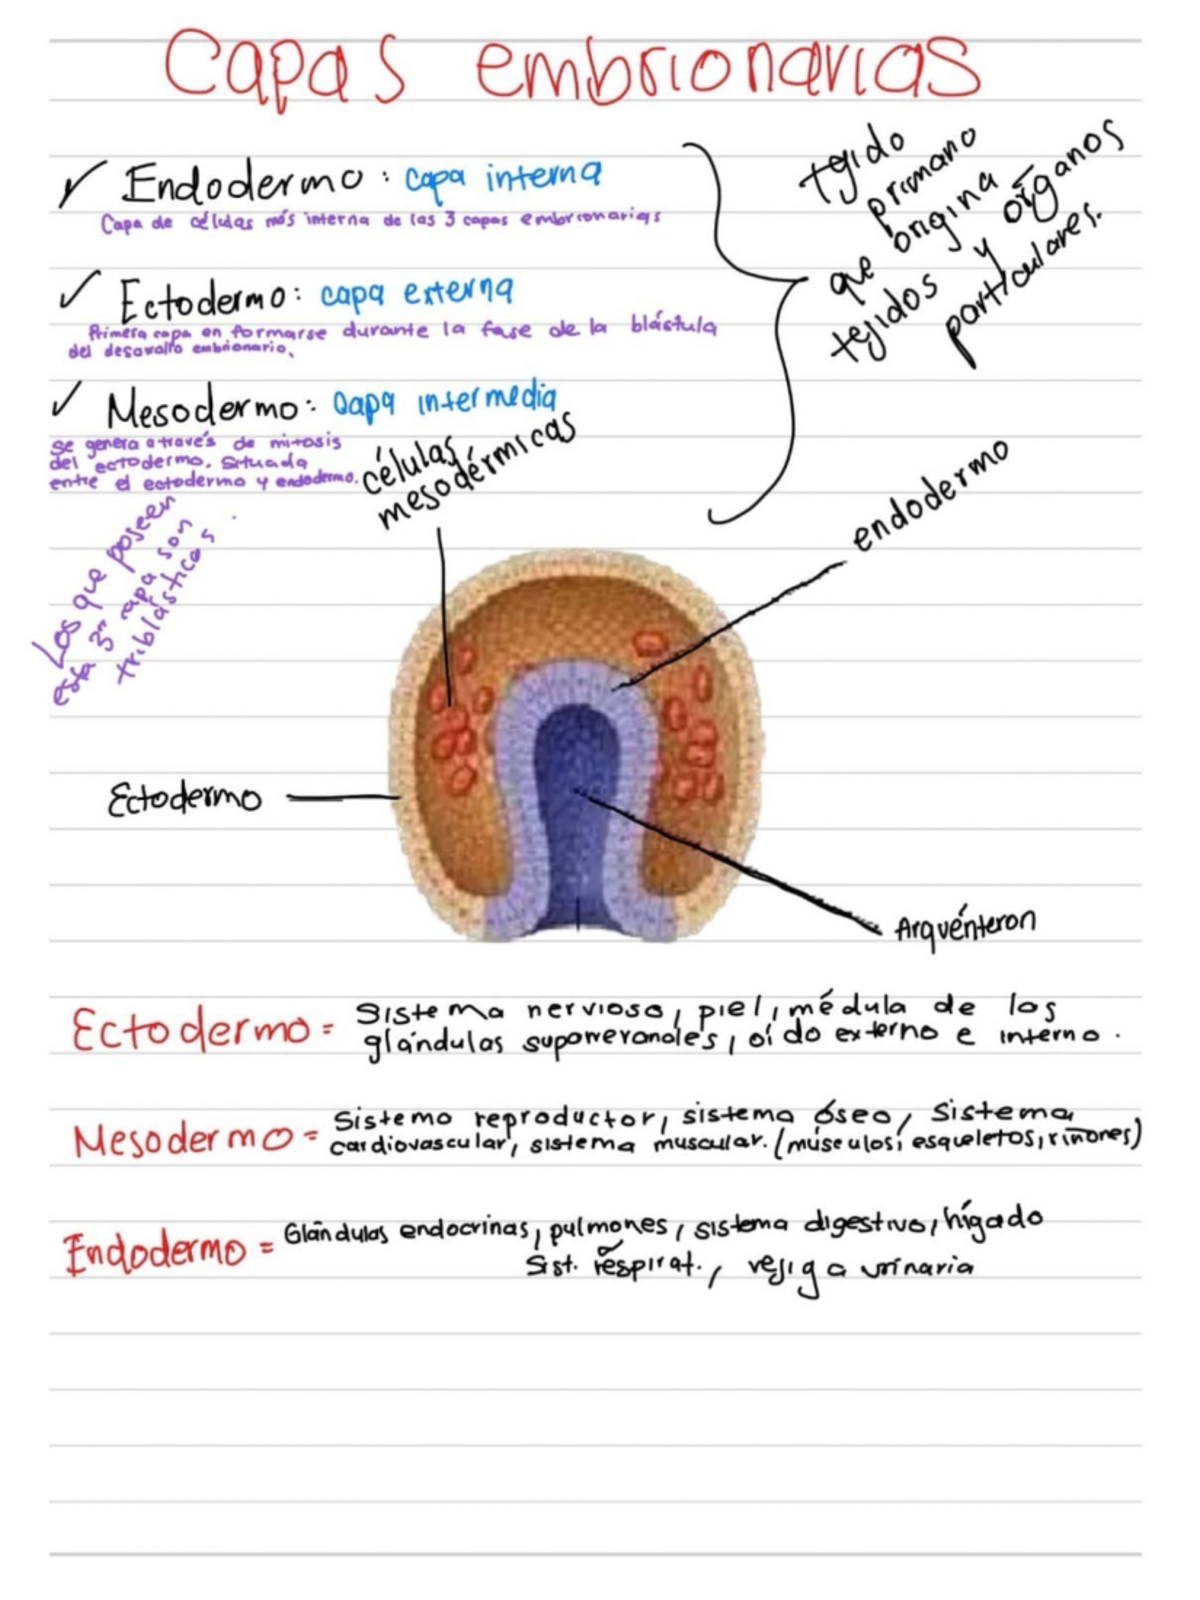 Capas embrionarias
✓ Endodermo: capa interna
Capa de células más interna de las 3 capas embrionarias
✓ Ectodermo: capa externa
Primera capa en formarse durante la fase de la blástula
del desarollo embrionario.
✓ Mesodermo: capa intermedia
Se genera a través de mitosis
del ectodermo. Situada
entre el ectodermo y endodermo.
Los que poseen
esta 3ra capa son
triblásticos
tejido
primario
que origina
tejidos y órganos
particulares.
células
mesodérmicas
endodermo
Ectodermo
Arquénteron
Ectodermo = Sistema nervioso, piel, médula de los
glándulas suporrenales, oído externo e interno.
Mesodermo = Sistema reproductor, sistema óseo, sistema
cardiovascular, sistema muscular. (músculos, esqueletos, riñones)
Endodermo = Glándulas endocrinas, pulmones, sistema digestivo, hígado
Sist. respirat., vejiga urinaria